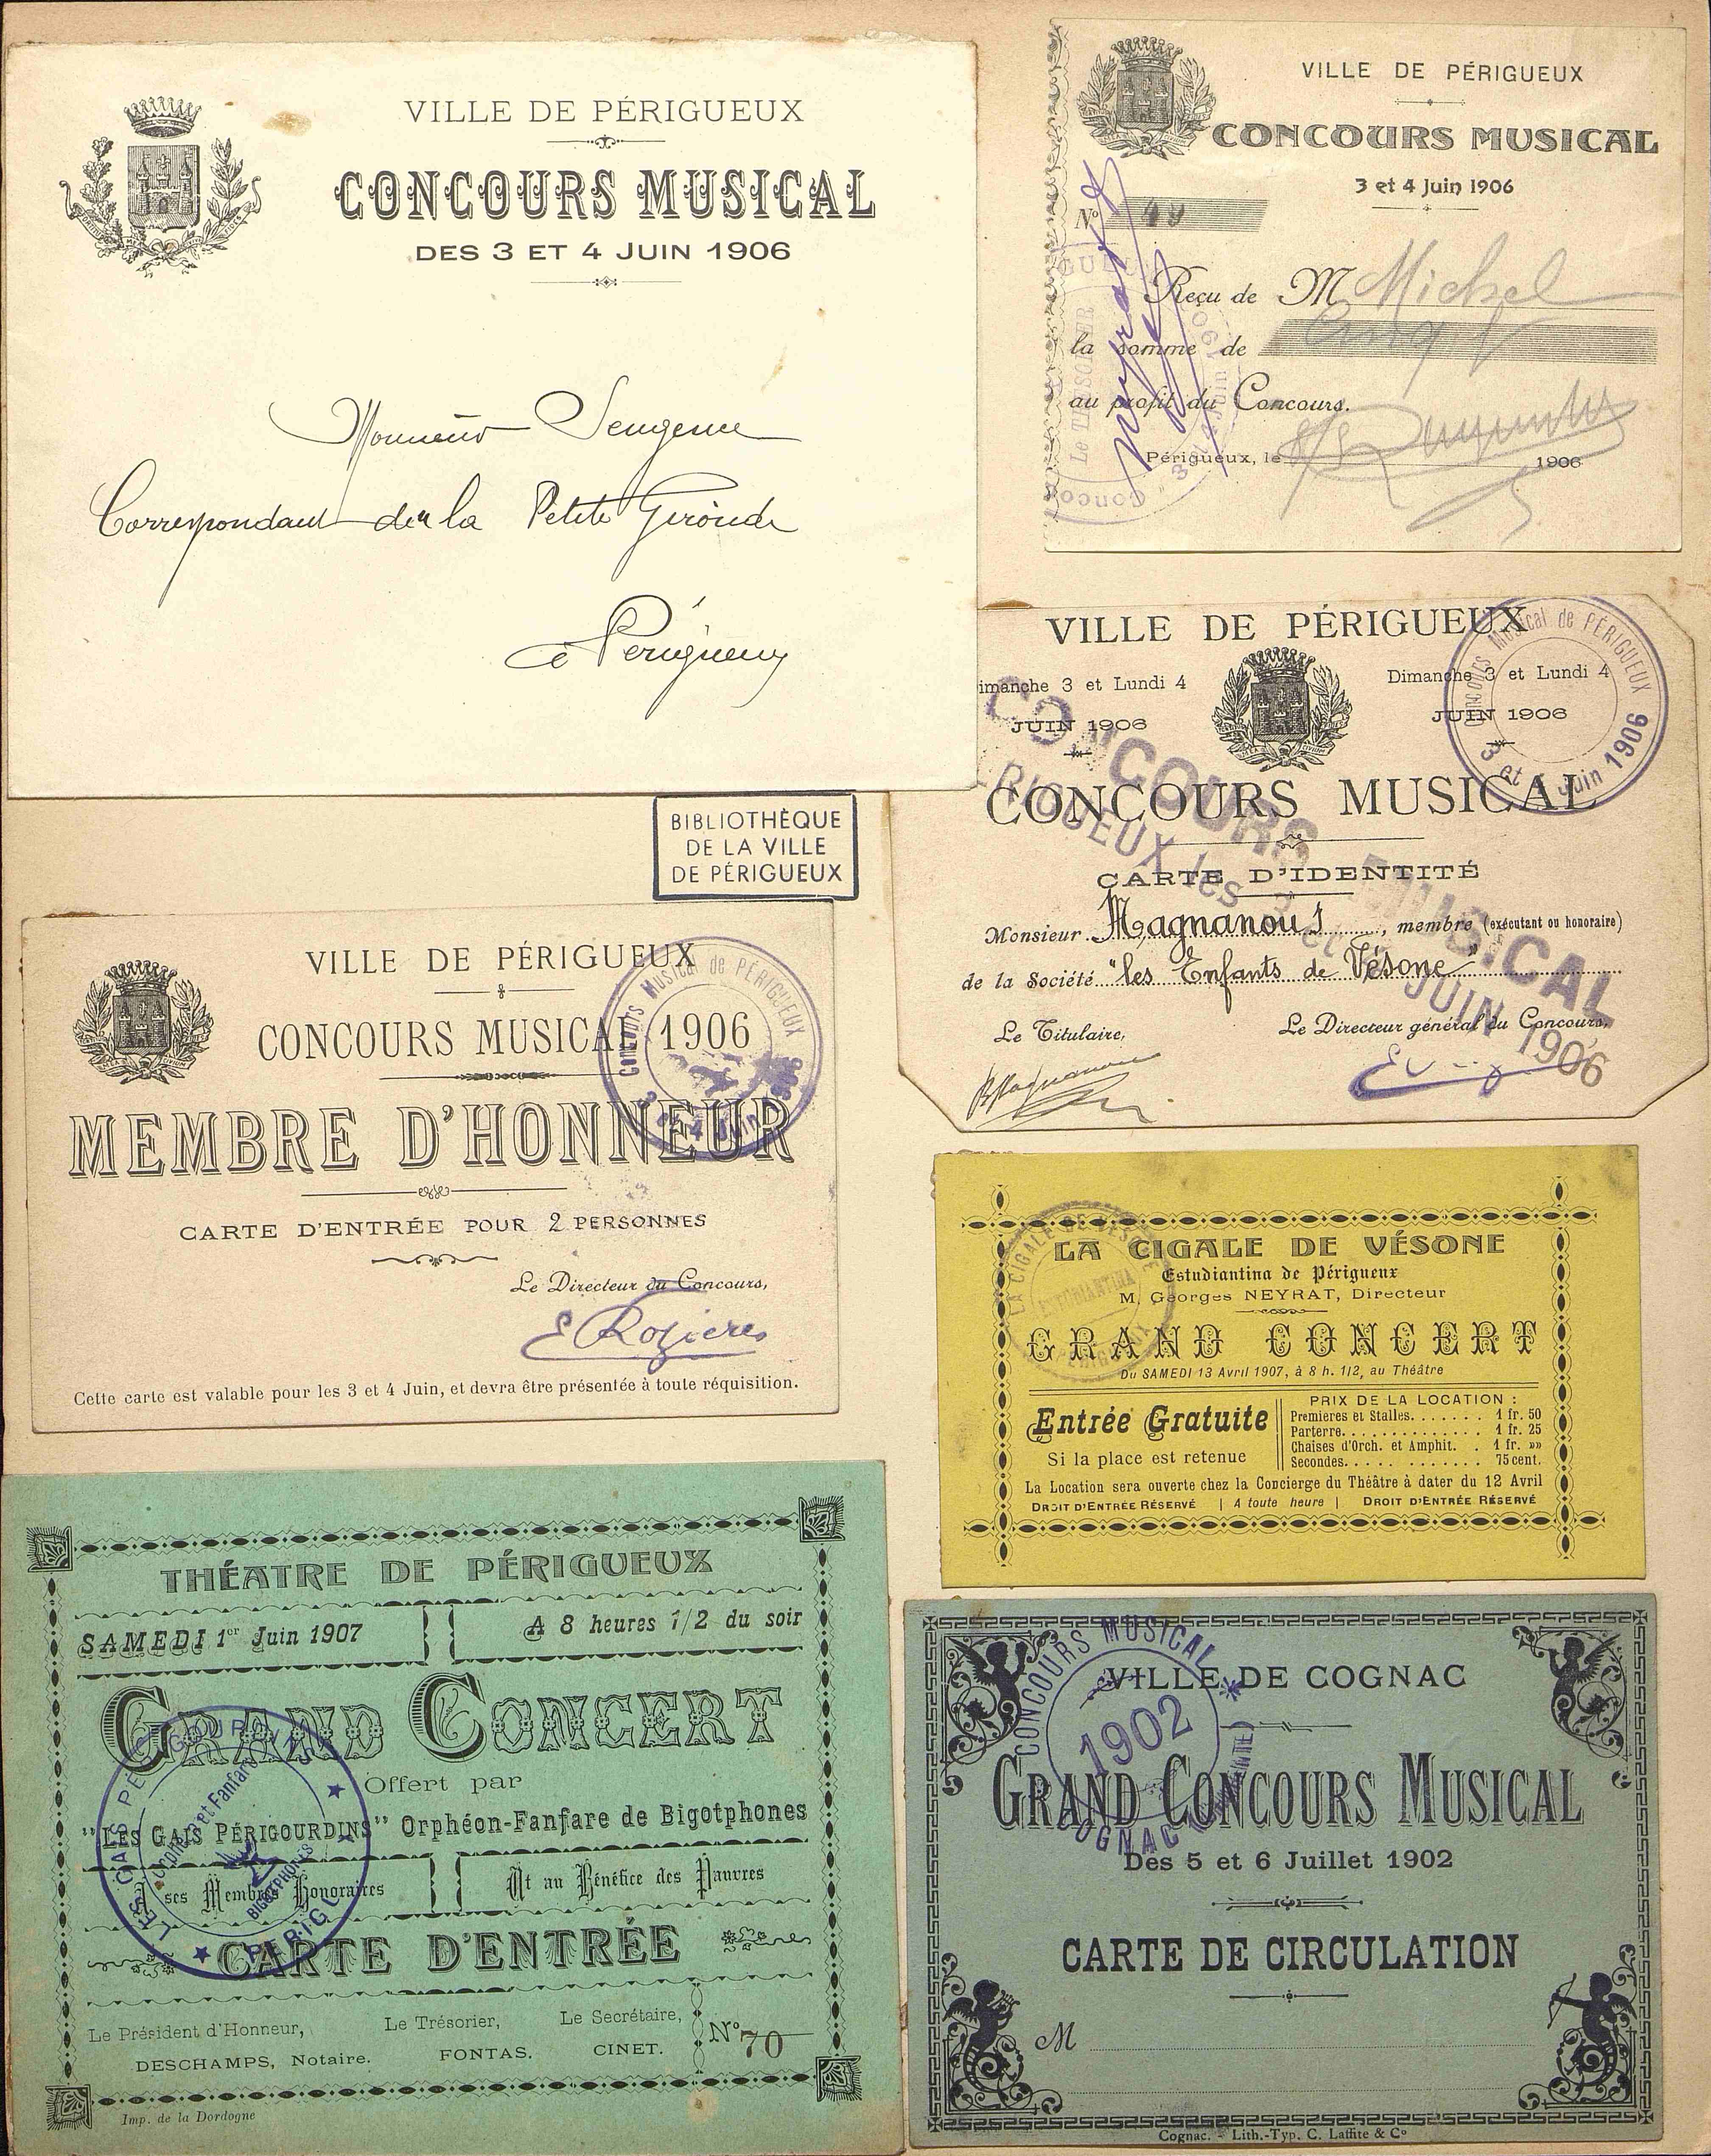 VILLE DE PÉRIGUEUX
CONCOURS MUSICAL
DES 3 ET 4 JUIN 1906
Monsieur
Correspondant de la Petite Gironde
à Périgueux
VILLE DE PÉRIGUEUX
CONCOURS MUSICAL
3 et 4 Juin 1906
Nº 49
Reçu de M Michel
la somme de Cinq f
au profit du Concours.
Périgueux, le 1906
Le TRÉSORIER
VILLE DE PÉRIGUEUX
imanche 3 et Lundi 4
JUIN 1906
Dimanche 3 et Lundi 4
JUIN 1906
CONCOURS MUSICAL
CARTE D'IDENTITÉ
Monsieur Magnanou, membre (exécutant ou honoraire)
de la Société "les Enfants de Vésone"
Le Titulaire,
Le Directeur général du Concours,
Concours Musical de PÉRIGUEUX
3 et 4 Juin 1906
CONCOURS MUSICAL
RIGUEUX les 3 et 4 JUIN 1906
BIBLIOTHÈQUE
DE LA VILLE
DE PÉRIGUEUX
VILLE DE PÉRIGUEUX
CONCOURS MUSICAL 1906
MEMBRE D'HONNEUR
CARTE D'ENTRÉE POUR 2 PERSONNES
Le Directeur du Concours,
E Rozieres
Cette carte est valable pour les 3 et 4 Juin, et devra être présentée à toute réquisition.
Concours Musical de PÉRIGUEUX
3 et 4 Juin 1906
LA CIGALE DE VÉSONE
Estudiantina de Périgueux
M. Georges NEYRAT, Directeur
GRAND CONCERT
Du SAMEDI 13 Avril 1907, à 8 h. 1/2, au Théâtre
Entrée Gratuite
Si la place est retenue
PRIX DE LA LOCATION :
Premières et Stalles. . . . . . . 1 fr. 50
Parterre. . . . . . . . . . . . . . 1 fr. 25
Chaises d'Orch. et Amphit. . 1 fr. »»
Secondes. . . . . . . . . . . . 75 cent.
La Location sera ouverte chez la Concierge du Théâtre à dater du 12 Avril
DROIT D'ENTRÉE RÉSERVÉ | A toute heure | DROIT D'ENTRÉE RÉSERVÉ
THÉATRE DE PÉRIGUEUX
SAMEDI 1er Juin 1907
A 8 heures 1/2 du soir
GRAND CONCERT
Offert par
"LES GAIS PÉRIGOURDINS" Orphéon-Fanfare de Bigotphones
A ses Membres Honoraires
Et au Bénéfice des Pauvres
CARTE D'ENTRÉE
Le Président d'Honneur,
DESCHAMPS, Notaire.
Le Trésorier,
FONTAS.
Le Secrétaire,
CINET.
Nº 70
Imp. de la Dordogne
VILLE DE COGNAC
GRAND CONCOURS MUSICAL
Des 5 et 6 Juillet 1902
CARTE DE CIRCULATION
M
Cognac. - Lith.-Typ. C. Laffite & Cº
CONCOURS MUSICAL
1902
COGNAC